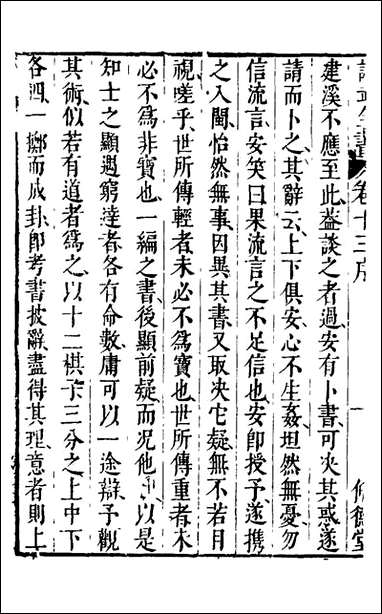 卷十三序
一
修德堂
建溪不應至此益談之者過安有卜書可决其惑遂
請而卜之其辭云上下俱安心不生姦坦然無憂勿
信流言安笑曰果流言之不足信也安卽授予遂携
之入閩怡然無事因異其書又取决它疑無不若目
視嗟乎世所傳輕者未必不爲寶也世所傳重者未
必不爲非寶也一編之書後顯前疑而况他乎以是
知士之顯遇窮達者各有命數庸可以一途辯予觀
其術似若有道者爲之以十二棋子三分之上中下
各四一擲而成卦卽考書披辭盡得其理意者則上